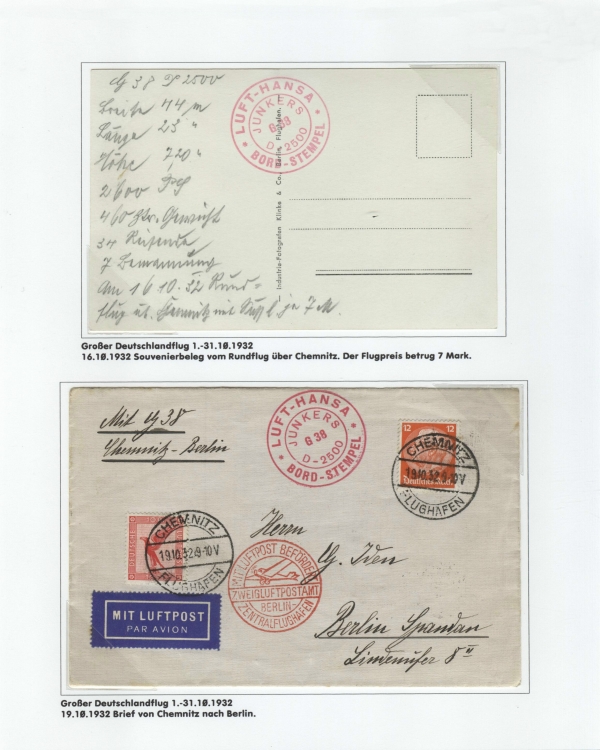 G 38 D 2500
Breite 44 m
Länge 23 "
Höhe 7,20 "
2600 PS
460 Ztr. Gewicht
34 Reisende
7 Bemannung
Am 16.10.32 Rund=
flug üb. Chemnitz mit je 7 M.
LUFT-HANSA
JUNKERS
G 38
D-2500
BORD-STEMPEL
Industrie-Fotografen Klinke & Co., Berlin, Flughafen.
Großer Deutschlandflug 1.-31.10.1932
16.10.1932 Souvenierbeleg vom Rundflug über Chemnitz. Der Flugpreis betrug 7 Mark.
Mit G 38
Chemnitz-Berlin
LUFT-HANSA
JUNKERS
G 38
D-2500
BORD-STEMPEL
12 12
Deutsches Reich
CHEMNITZ
19.10.32.9-10V
FLUGHAFEN
DEUTSCHE
CHEMNITZ
19.10.32.9-10V
FLUGHAFEN
MIT LUFTPOST
PAR AVION
MIT LUFTPOST BEFÖRDERT
ZWEIGLUFTPOSTAMT
BERLIN-
ZENTRALFLUGHAFEN
Herrn
G. Iden
Berlin Spandau
Lindenufer 8
Großer Deutschlandflug 1.-31.10.1932
19.10.1932 Brief von Chemnitz nach Berlin.